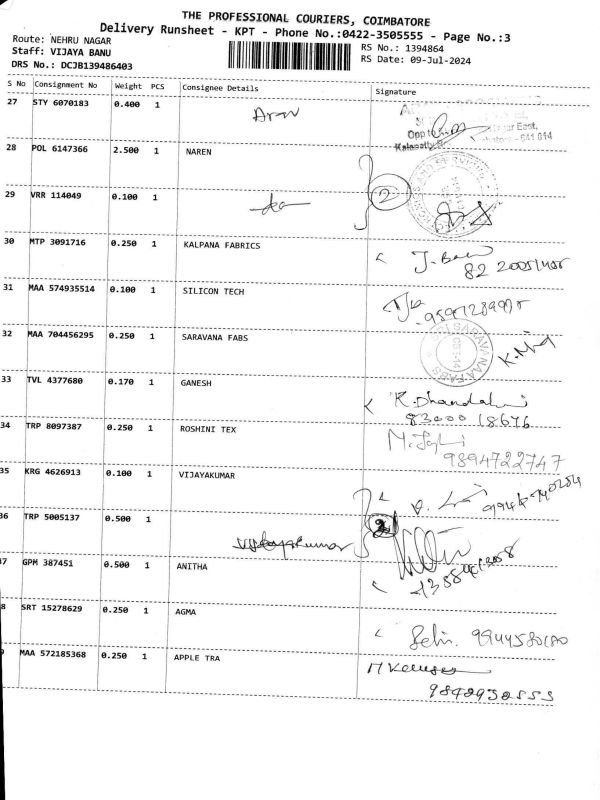 THE PROFESSIONAL COURIERS, COIMBATORE
Delivery Runsheet - KPT - Phone No.:0422-3505555 - Page No.:3
Route: NEHRU NAGAR
RS No.: 1394864
Staff: VIJAYA BANU
RS Date: 09-Jul-2024
DRS No.: DCJB139486403
S No Consignment No Weight PCS Consignee Details Signature
27 STY 6070183 0.400 1
28 POL 6147366 2.500 1 NAREN 2
29 VRR 114049 0.100 1
30 MTP 3091716 0.250 1 KALPANA FABRICS
31 MAA 574935514 0.100 1 SILICON TECH
32 MAA 704456295 0.250 1 SARAVANA FABS
33 TVL 4377680 0.170 1 GANESH
83000 18676
34 TRP 8097387 0.250 1 ROSHINI TEX
9894722747
35 KRG 4626913 0.100 1 VIJAYAKUMAR
36 TRP 5005137 0.500 1 Vijayakumar 2
37 GPM 387451 0.500 1 ANITHA
8 SRT 15278629 0.250 1 AGMA
9 MAA 572185368 0.250 1 APPLE TRA